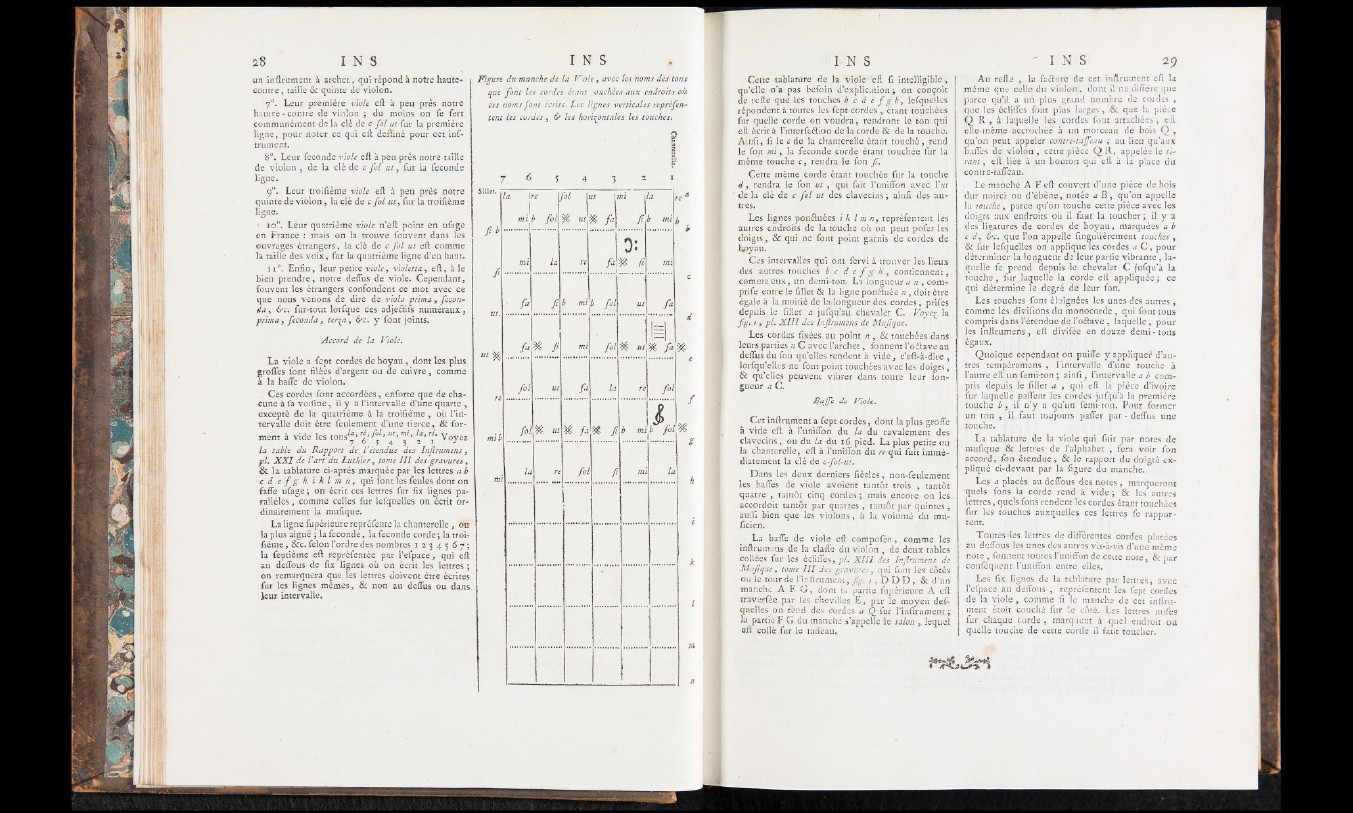 28 INS
un inſtrument à archet, qui répond à notre haute-
contre, taille & quinte de violon.
7°. Leur première viole eſt à peu près notre
haute-contre de violon ; du moins on ſe ſert
communément de la clé de c ſol ut ſur la première
ligne, pour noter ce qui eſt deſtiné pour cet inſ-
trument.
8°. Leur ſeconde viole eſt à peu près notre taille
de violon, de la clé de c ſol ut, ſur la ſeconde
ligne.
9°. Leur troiſième viole eſt à peu près notre
quinte de violon, la clé de c ſol ut, ſur la troiſième
ligne.
10°. Leur quatrième viole n'eſt point en uſage
en France : mais on la trouve ſouvent dans les
ouvrages étrangers, la clé de c ſol ut eſt comme
la taille des voix, ſur la quatrième ligne d'en haut.
11°. Enfin, leur petite viole, violetta, eſt, à le
bien prendre, notre deſſus de viole. Cependant,
ſouvent les étrangers confondent ce mot avec ce
que nous venons de dire de viola prima, ſecon-
da, &c. ſur-tout lorſque ces adjectifs numéraux,
prima, ſeconda, terza, &c. y ſont joints.
Accord de la Viole.
La viole a ſept cordes de boyau, dont les plus
groſſes ſont filées d'argent ou de cuivre, comme
à la baſſe de violon.
Ces cordes ſont accordées, enſorte que de cha-
cune à ſa voiſine, il y a l'intervalle d'une quarte,
excepté de la quatrième à la troiſième, où l'in-
tervalle doit être ſeulement d'une tierce, & for-
ment à vide les tons la, ré, ſol, ut, mi, la, ré. Voyez
7 6 5 4 3 2 1
la table du Rapport de l'étendue des Inſtrumens,
pl. XXI de l'art du Luthier, tome III des gravures,
& la tablature ci-après marquée par les lettres a b
c d e f g h i k l m n, qui ſont les ſeules dont on
faſſe uſage ; on écrit ces lettres ſur ſix lignes pa-
rallèles, comme celles ſur leſquelles on écrit or-
dinairement la muſique.
La ligne ſupérieure repréſente la chanterelle, ou
la plus aiguë ; la ſeconde, la ſeconde corde ; la troi-
ſième, &c. ſelon l'ordre des nombres 1 2 3 4 5 6 7 ;
la ſeptième eſt repréſentée par l'eſpace, qui eſt
au deſſous de ſix lignes où on écrit les lettres ;
on remarquera que les lettres doivent être écrites
ſur les lignes mêmes, & non au deſſus ou dans
leur intervalle.
INS
Figure du manche de la Viole, avec les noms des tons
que font les cordes étant touchées aux endroits où
ces noms ſont écrits. Les lignes verticales repréſen-
tent les cordes, & les horizontales les touches.
Chanterelle.
7 6 5 4 3 2 1
Sillet.
la re ſol ut mi la re a
ſi b mi b ſol ※ ut ※ fa ſi b mi b b
ſi mi la re fa ※ ſi mi c
ut fa ſi b mi b ſol ut fa d
ut ※ fa ※ ſi mi ſol ※ ut ※ fa ※ e
re ſol ut fa la re ſol f
mi b ſol ※ ut ※ fa ※ ſi b mi b ſol ※ g
mi la re ſol ſi mi la h
i
k
l
m
n
INS
Cette tablature de la viole eſt ſi intelligible,
qu'elle n'a pas beſoin d'explication ; on conçoit
de reſte que les touches b c d e f g h, leſquelles
répondent à toutes les ſept cordes, étant touchées
ſur quelle corde on voudra, rendront le ton qui
eſt écrit à l'interſection de la corde & de la touche.
Ainſi, ſi le c de la chanterelle étant touché, rend
le ſon mi, la ſeconde corde étant touchée ſur la
même touche c, rendra le ſon ſi.
Cette même corde étant touchée ſur la touche
d, rendra le ſon ut, qui fait l'uniſſon avec l'ut
de la clé de c ſol ut des clavecins ; ainſi des au-
tres.
Les lignes ponctuées i k l m n, repréſentent les
autres endroits de la touche où on peut poſer les
doigts, & qui ne ſont point garnis de cordes de
boyau.
Ces intervalles qui ont ſervi à trouver les lieux
des autres touches b c d e f g h, contiennent,
comme eux, un demi-ton. La longueur a n, com-
priſe entre le ſillet & la ligne ponctuée n, doit être
égale à la moitié de la longueur des cordes, priſes
depuis le ſillet a juſqu'au chevalet C. Voyez la
fig. 1, pl. XIII des Inſtrumens de Muſique.
Les cordes fixées au point n, & touchées dans
leurs parties n C avec l'archet, ſonnent l'octave au
deſſus du ſon qu'elles rendent à vide, c'eſt-à-dire,
lorſqu'elles ne ſont point touchées avec les doigts,
& qu'elles peuvent vibrer dans toute leur lon-
gueur a C.
Baſſe de Viole.
Cet inſtrument a ſept cordes, dont la plus groſſe
à vide eſt à l'uniſſon du la du ravalement des
clavecins, ou du la du 16 pied. La plus petite ou
la chanterelle, eſt à l'uniſſon du re qui ſuit immé-
diatement la clé de c-ſol-ut.
Dans les deux derniers ſiècles, non-ſeulement
les baſſes de viole avoient tantôt trois, tantôt
quatre, tantôt cinq cordes ; mais encore on les
accordoit tantôt par quartes, tantôt par quintes,
auſſi bien que les violons, à la volonté du mu-
ſicien.
La baſſe de viole eſt compoſée, comme les
inſtrumens de la claſſe du violon, de deux tables
collées ſur les écliſſes, pl. XIII des Inſtrumens de
Muſique, tome III des gravures, qui ſont les côtés
ou le tour de l'inſtrument, fig. 1, D D D, & d'un
manche A F G, dont la partie ſupérieure A eſt
traverſée par les chevilles E, par le moyen deſ-
quelles on tend des cordes a Q ſur l'inſtrument ;
la partie F G du manche s'appelle le talon, lequel
eſt collé ſur le taſſeau.
INS 29
Au reſte, la facture de cet inſtrument eſt la
même que celle du violon, dont il ne diffère que
parce qu'il a un plus grand nombre de cordes,
que les écliſſes ſont plus larges, & que la pièce
Q R, à laquelle les cordes ſont attachées, eſt
elle-même accrochée à un morceau de bois Q,
qu'on peut appeler contre-taſſeau ; au lieu qu'aux
baſſes de violon, cette pièce Q R, appelée le ti-
rant, eſt liée à un bouton qui eſt à la place du
contre-taſſeau.
Le manche A F eſt couvert d'une pièce de bois
dur noirci ou d'ébène, notée a B, qu'on appelle
la touche, parce qu'on touche cette pièce avec les
doigts aux endroits où il faut la toucher ; il y a
des ligatures de cordes de boyau, marquées a b
c d, &c. que l'on appelle ſingulièrement touches,
& ſur leſquelles on applique les cordes a C, pour
déterminer la longueur de leur partie vibrante, la-
quelle ſe prend depuis le chevalet C juſqu'à la
touche, ſur laquelle la corde eſt appliquée ; ce
qui détermine le degré de leur ſon.
Les touches ſont éloignées les unes des autres,
comme les diviſions du monocorde, qui ſont tous
compris dans l'étendue de l'octave, laquelle, pour
les inſtrumens, eſt diviſée en douze demi-tons
égaux.
Quoique cependant on puiſſe y appliquer d'au-
tres tempéramens, l'intervalle d'une touche à
l'autre eſt un ſemi-ton ; ainſi, l'intervalle a b com-
pris depuis le ſillet a, qui eſt la pièce d'ivoire
ſur laquelle paſſent les cordes juſqu'à la première
touche b, il n'y a qu'un ſemi-ton. Pour former
un ton, il faut toujours paſſer par-deſſus une
touche.
La tablature de la viole qui ſuit par notes de
muſique & lettres de l'alphabet, fera voir ſon
accord, ſon étendue, & le rapport du doigté ex-
pliqué ci-devant par la figure du manche.
Les a placés au deſſous des notes, marqueront
quels ſons la corde rend à vide ; & les autres
lettres, quels ſons rendent les cordes étant touchées
ſur les touches auxquelles ces lettres ſe rappor-
tent.
Toutes les lettres de différentes cordes placées
au deſſous les unes des autres vis-à-vis d'une même
note, ſonnent toutes l'uniſſon de cette note, & par
conſéquent l'uniſſon entre elles.
Les ſix lignes de la tablature par lettres, avec
l'eſpace au deſſous, repréſentent les ſept cordes
de la viole, comme ſi le manche de cet inſtru-
ment étoit couché ſur le côté. Les lettres miſes
ſur chaque corde, marquent à quel endroit ou
quelle touche de cette corde il faut toucher.